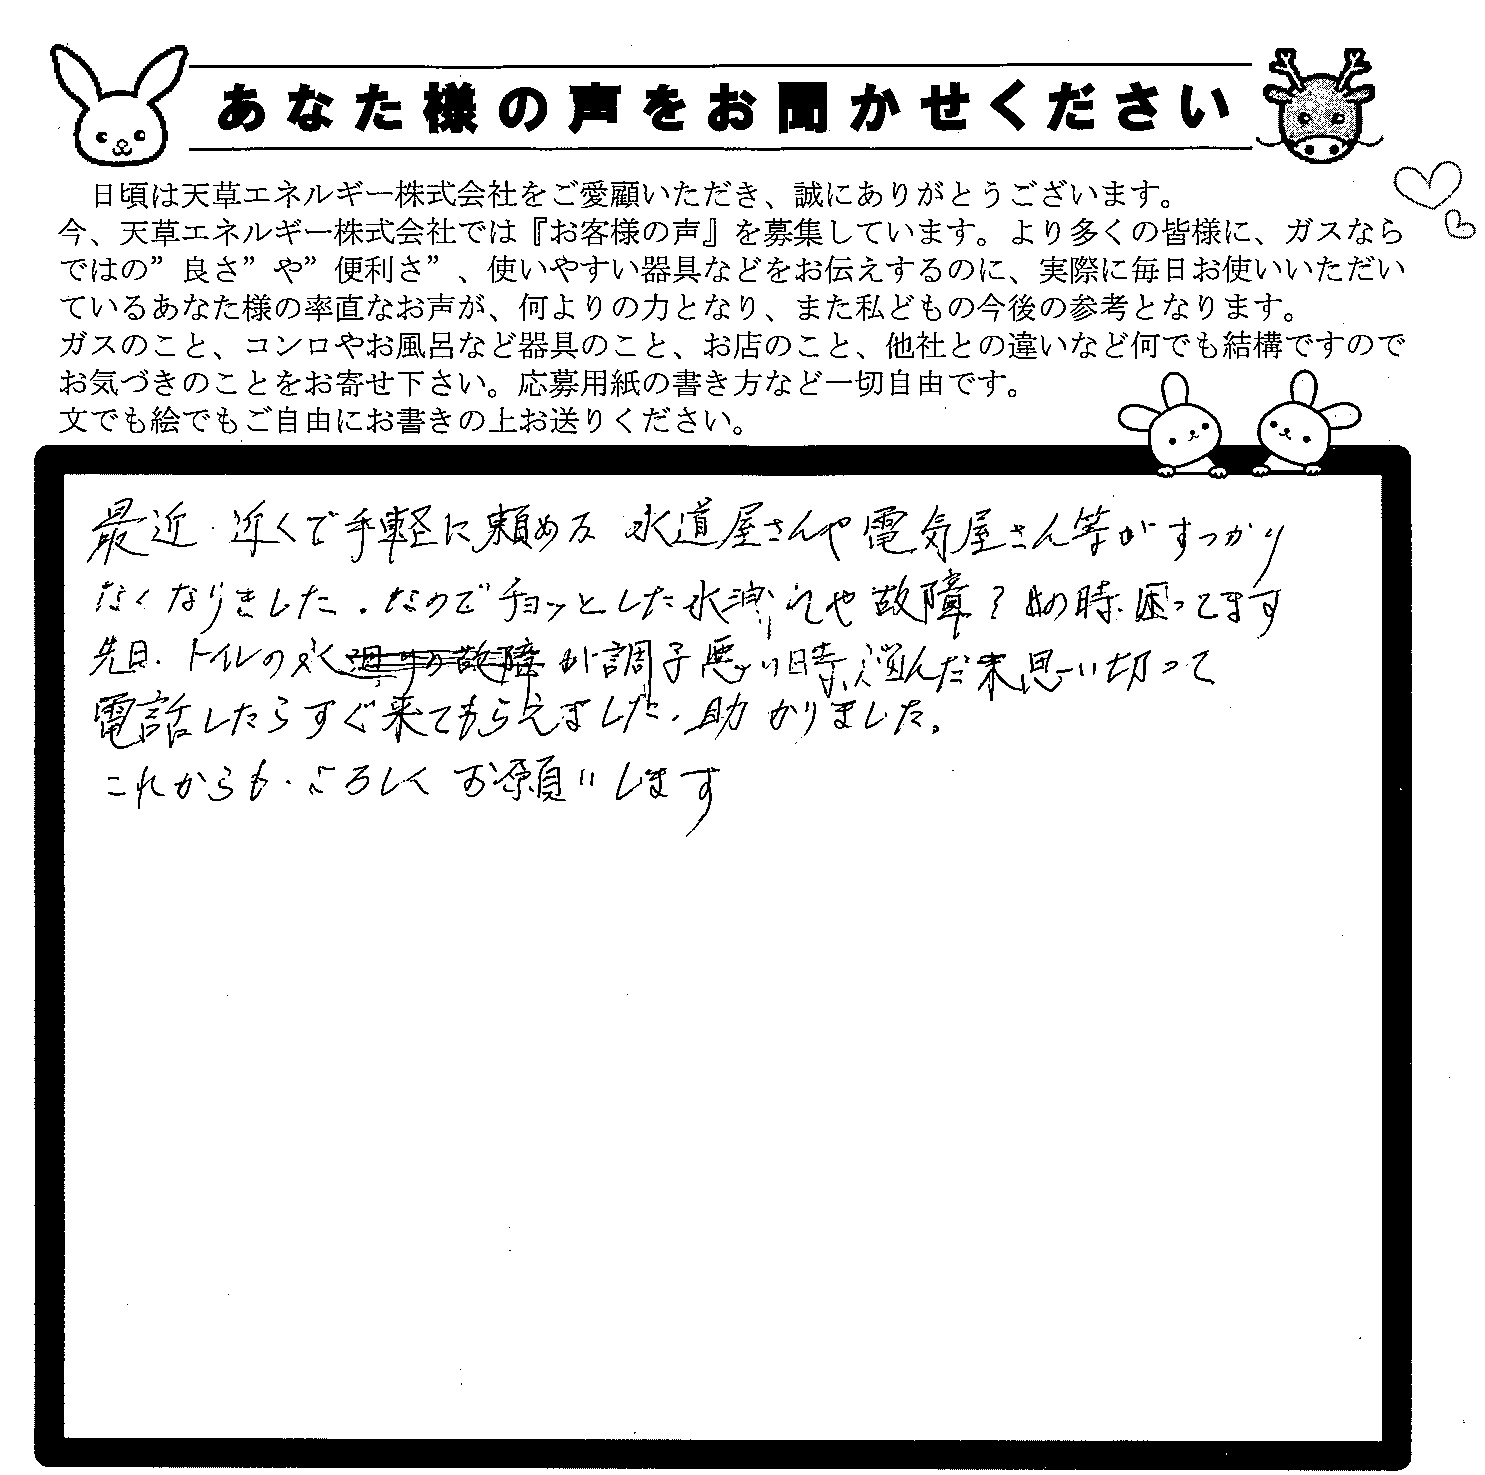 あなた様の声をお聞かせください
日頃は天草エネルギー株式会社をご愛顧いただき、誠にありがとうございます。
今、天草エネルギー株式会社では『お客様の声』を募集しています。より多くの皆様に、ガスなら
ではの”良さ”や”便利さ”、使いやすい器具などをお伝えするのに、実際に毎日お使いいただい
ているあなた様の率直なお声が、何よりの力となり、また私どもの今後の参考となります。
ガスのこと、コンロやお風呂など器具のこと、お店のこと、他社との違いなど何でも結構ですので
お気づきのことをお寄せ下さい。応募用紙の書き方など一切自由です。
文でも絵でもご自由にお書きの上お送りください。
最近、近くで手軽に頼める水道屋さんや電気屋さん等がすっかり
なくなりました。なのでチョッとした水漏れや故障?の時、困ってます
先日、トイレの水が調子悪い時、悩んだ末、思い切って
電話したらすぐ来てもらえました。助かりました。
これからも、よろしくお願いします